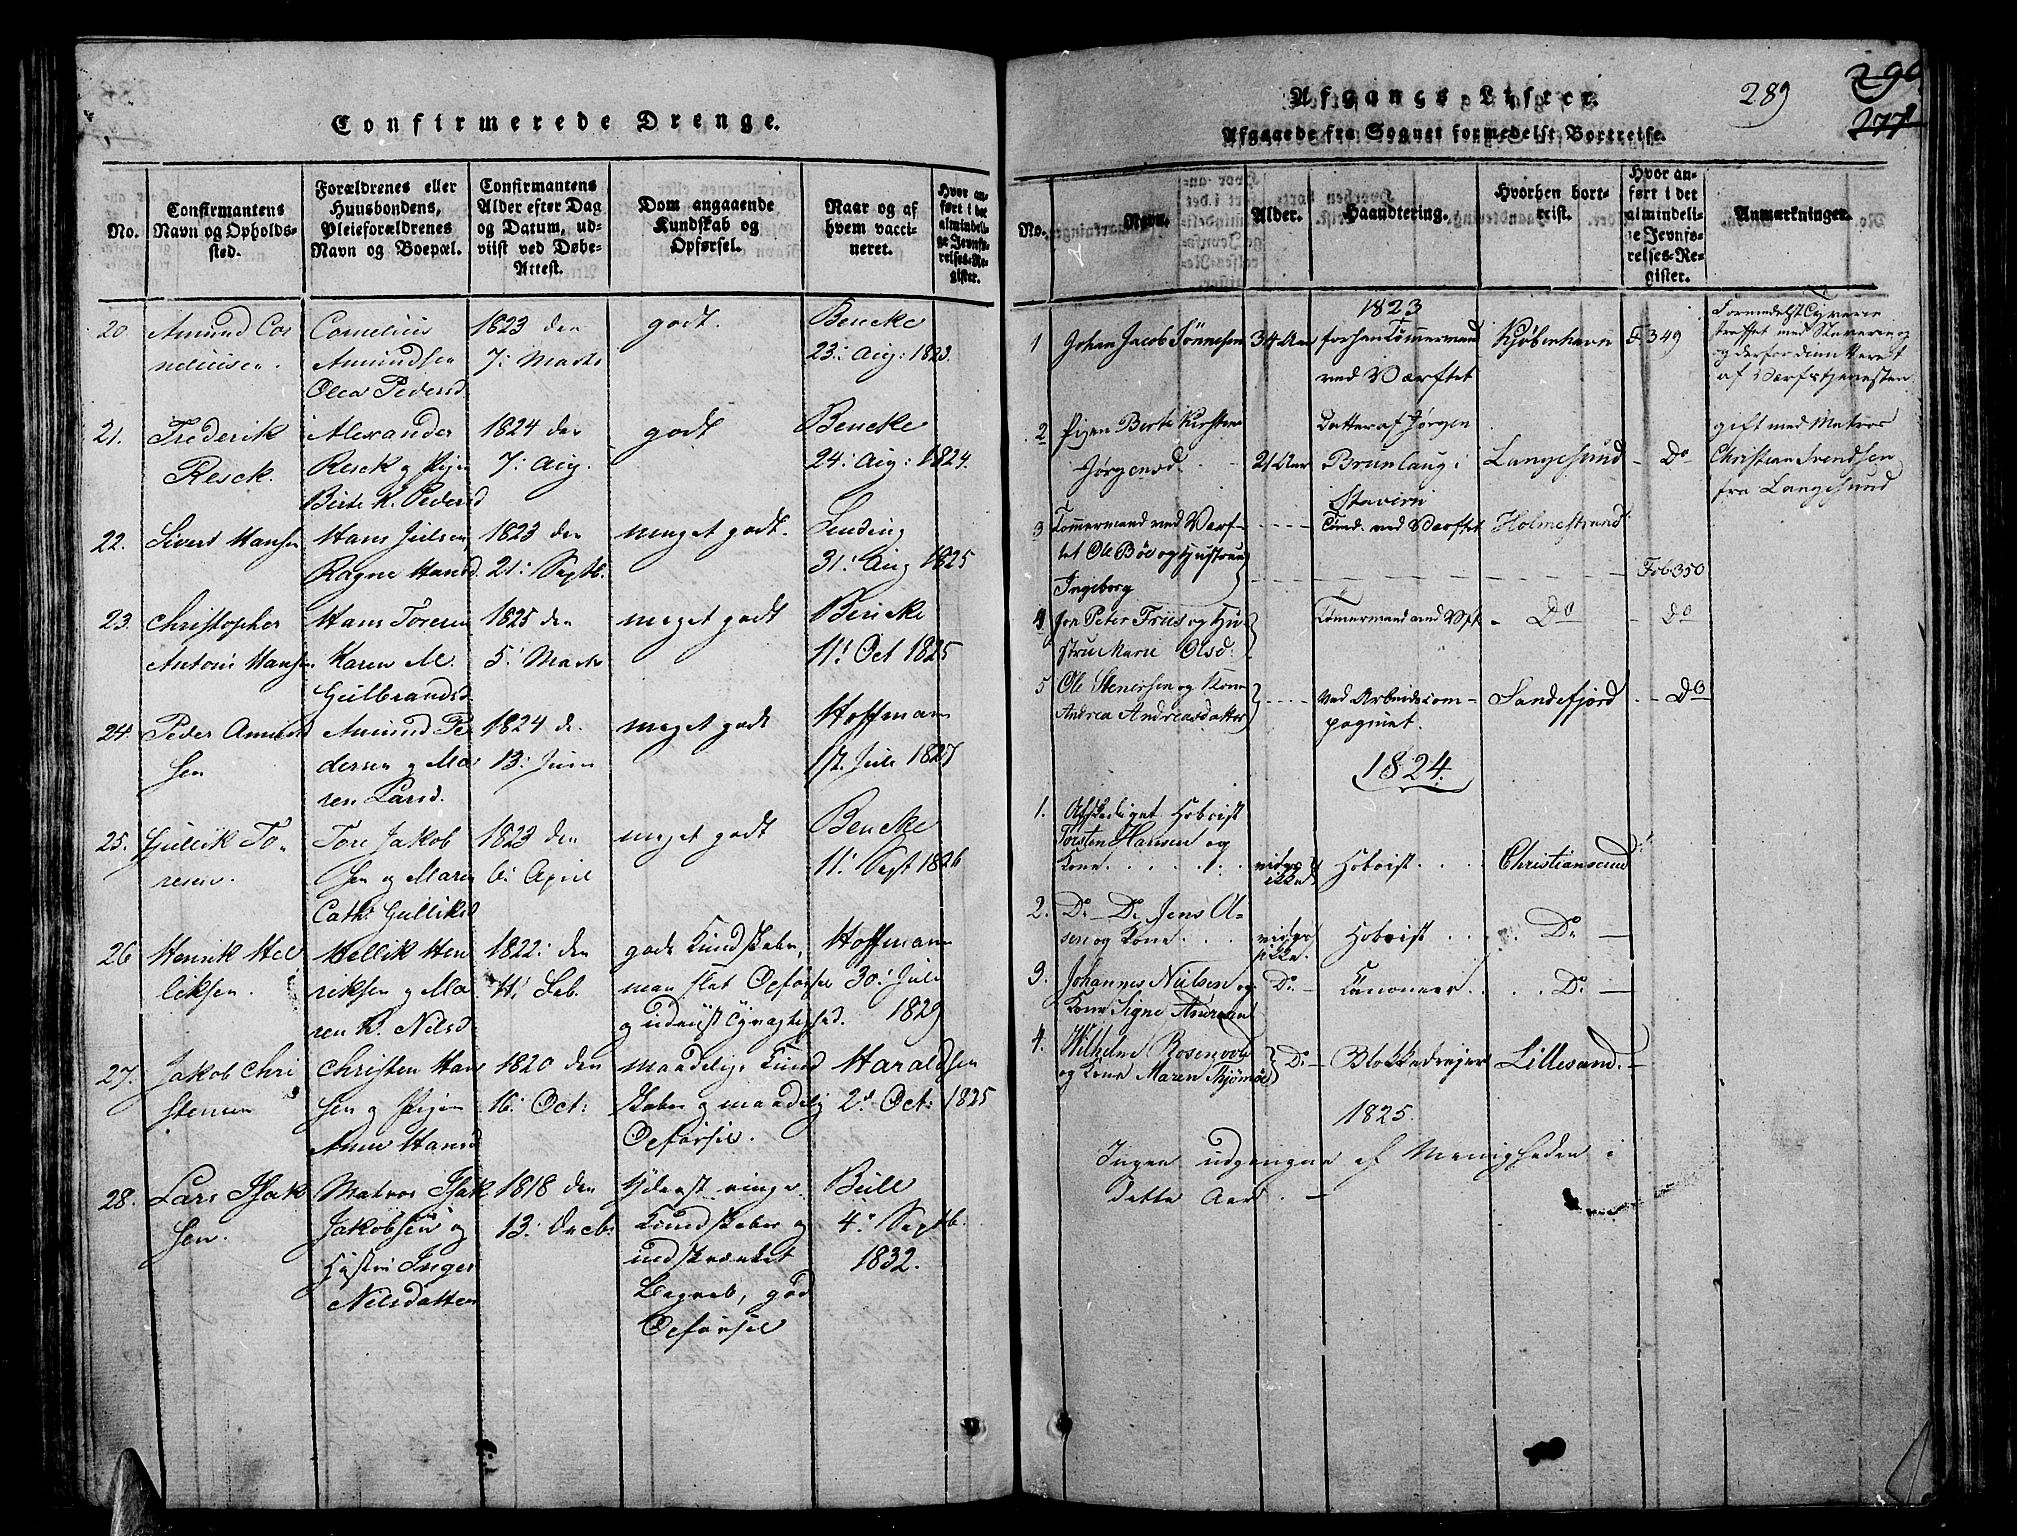 Confirmerede Drenge.
No.
Confirmantens
Navn og Opholds-
sted.
Forældrenes eller
Huusbondens,
Pleieforældrenes
Navn og Boepæl.
Confirmantens
Alder efter Dag
og Datum, ud-
viist ved Døbe-
Attest.
Dom angaaende
Kundskab og
Opførsel.
Naar og af
hvem vacci-
neret.
Hvor an-
ført i det
almindeli-
ge Jevnfø-
relses-Re-
gister.
20.
Amund Cor
neliusen.
Cornelius
Amundsen
Olea Pedersd
1823 den
7: Marts
godt.
Bencke
23: Aug: 1823.
21.
Frederik
Resck.
Alexander
Resck og Pigen
Birte K. Pedersd
1824 den
7: Aug.
godt
Bencke
24: Aug: 1824.
22.
Sivert Hansen
Hans Juelsen,
Ragne Hansd.
1823 den
21: Septb.
meget godt.
31: Aug 1825
23.
Christopher
Anton Hansen
Hans Toresen
Karen M.
Gulbrandsd
1825 den
5: Marts
meget godt
Bencke
11: Oct 1825
24.
Peder Amund
sen
Amund Pe
dersen og Ma
ren Larsd.
1824 de
13: Juni
meget godt
Hoffman
17. Juli 1827
25.
Gullik To-
resen.
Tore Jakob
sen og Maren
Cath: Gulliksd
1823 den
6: April
meget godt
Bencke
11: Sept 1826
26
Henrik Hel
liksen.
Hellik Hen
riksen og Ma
ren K. Nilsd
1822: den
11: Feb.
gode Kundskaber,
men slet Opførsel
Hoffman
30: Juli
1829
27.
Jakob Chri
stensen
Christen Han
sen og Pigen
Anne Hansd
1820 den
16: Oct:
maadelige Kund
skaber og maadelig
Opførsel.
Haraldsen
2: Oct: 1825
28.
Lars Isak
sen.
Matros Isak
Jakobsen og
Hustru Inger
Nilsdatter
1818 den
13: Decb:
Yderst ringe
Kundskaber og
indskrænket
Begreb, god
Opførsel
Bull
4: Septb.
1832.
289
290
277
Afgangs-Lister.
Afgaaede fra Sognet formedelst Bortreise.
No.
Navn.
Alder.
Haandtering.
Hvorhen bort-
reist.
Hvor an-
ført i det
almindeli-
ge Jevnfø-
relses-Re-
gister.
Anmærkninger.
1823
1
Johan Jacob Tønnesen
34 Aar
ved Værftet
Kjøbenhavn
349
af Værfstjenesten
2
Pigen Berte Kirstine
Jørgensd.
21 Aar
Datter af Jørgen
Brunlaug i
Stavern
Langesund
Do
gift med Matros
Christian Svendsen
fra Langesund
3
Tømmermand ved Værf-
tet Ole Bøe og Hustrue
Ingeborg
Tømd. ved Værftet
Holmestrand
Fol 350
4
Jon Peter Friis og Hu-
stru Marie Olsd:
Tømmermand ved Vft
Do
Do
5
Ole Stenersen og Kone
Andrea Andreasdatter
ved Arbeidscom-
pagniet.
Sandefjord
Do
1824.
1.
Afskediget Hoboist
Torsten Hansen og
Kone
vides
ikke
Hoboist
Christiansund
2.
Do Do Jens O-
sen og Kone
vides
ikke.
Hoboist
Do
3.
Johannes Nielsen og
Kone Signe Andrea
Do
Canoneer
Do
4.
Wilhelm Rosenvold
og Kone Maren Thjømøe
Do
Blokkedreier
Lillesand.
1825.
Ingen udgangne af Menigheden i
dette Aar.